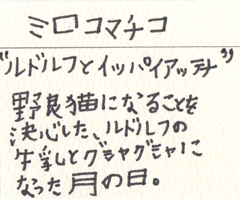 ミロコマチコ
"ルドルフとイッパイアッテナ"
野良猫になることを
決心した、ルドルフの
牛乳とグシャグシャに
なった月の日。